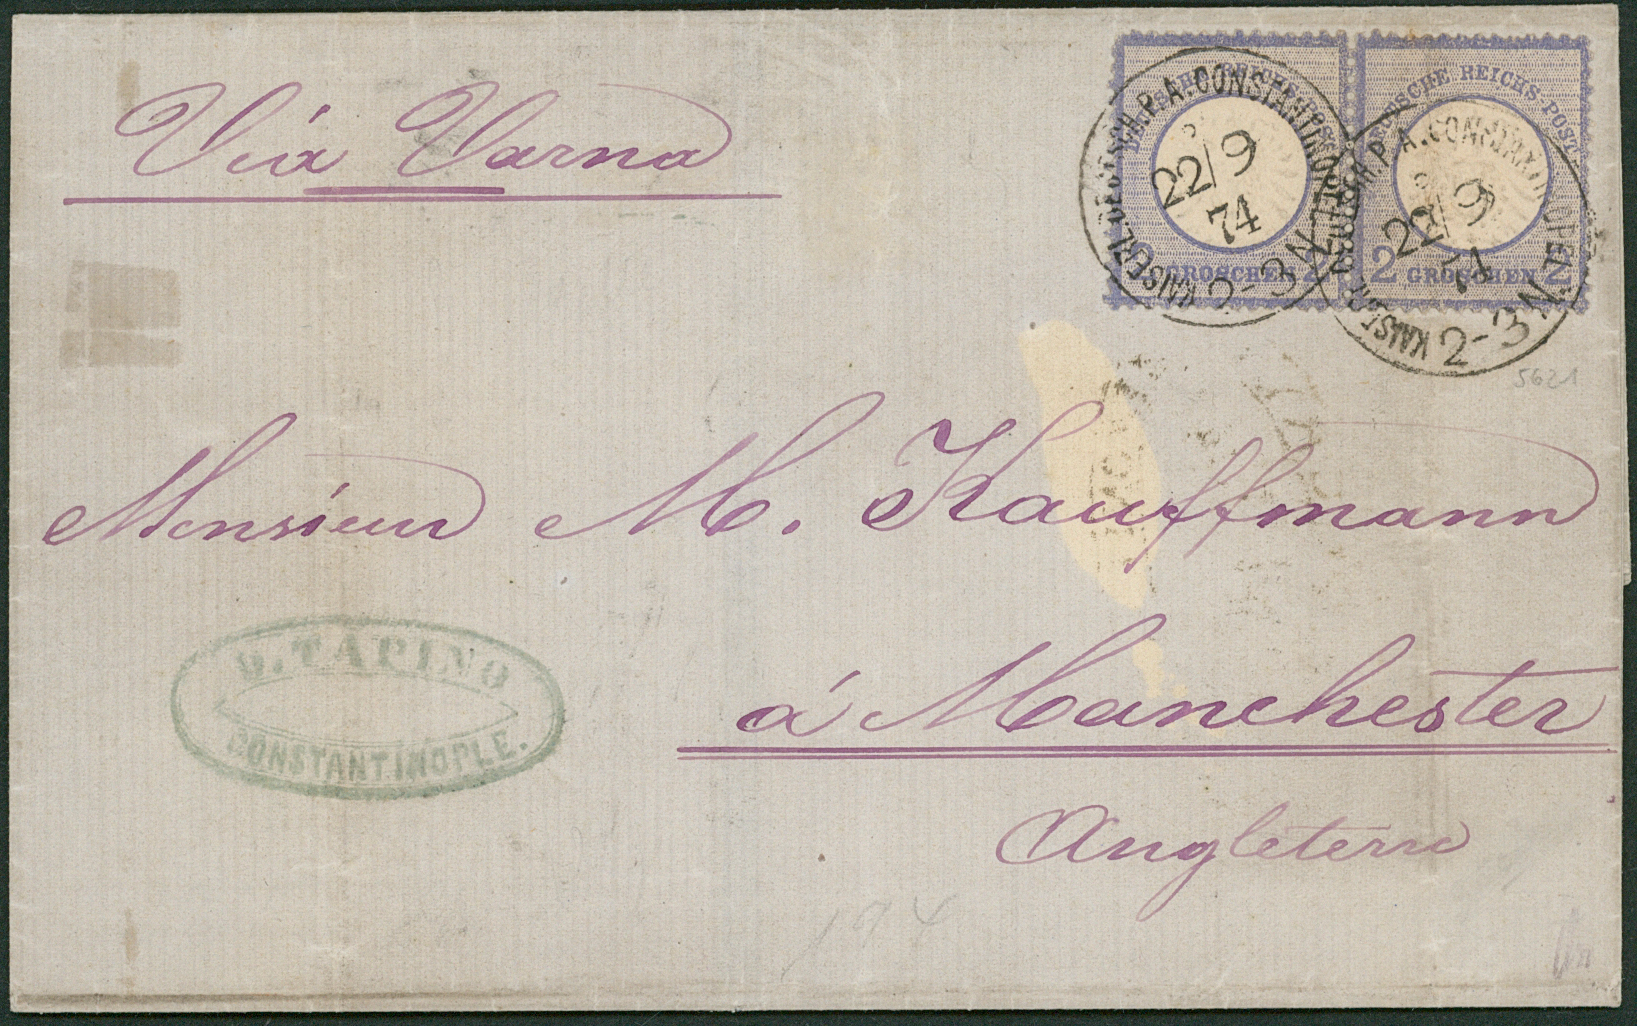 Via Varna
DEUTSCHE REICHS-POST
2 GROSCHEN 2
DEUTSCHE REICHS-POST
2 GROSCHEN 2
KAISERL. DEUTSCH. P. A. CONSTANTINOPEL
22/9
74
2-3 N
KAISERL. DEUTSCH. P. A. CONSTANTINOPEL
22/9
74
2-3 N
5621
Monsieur M. Kauffmann
D. TAPINO
CONSTANTINOPLE.
á Manchester
Angleterre